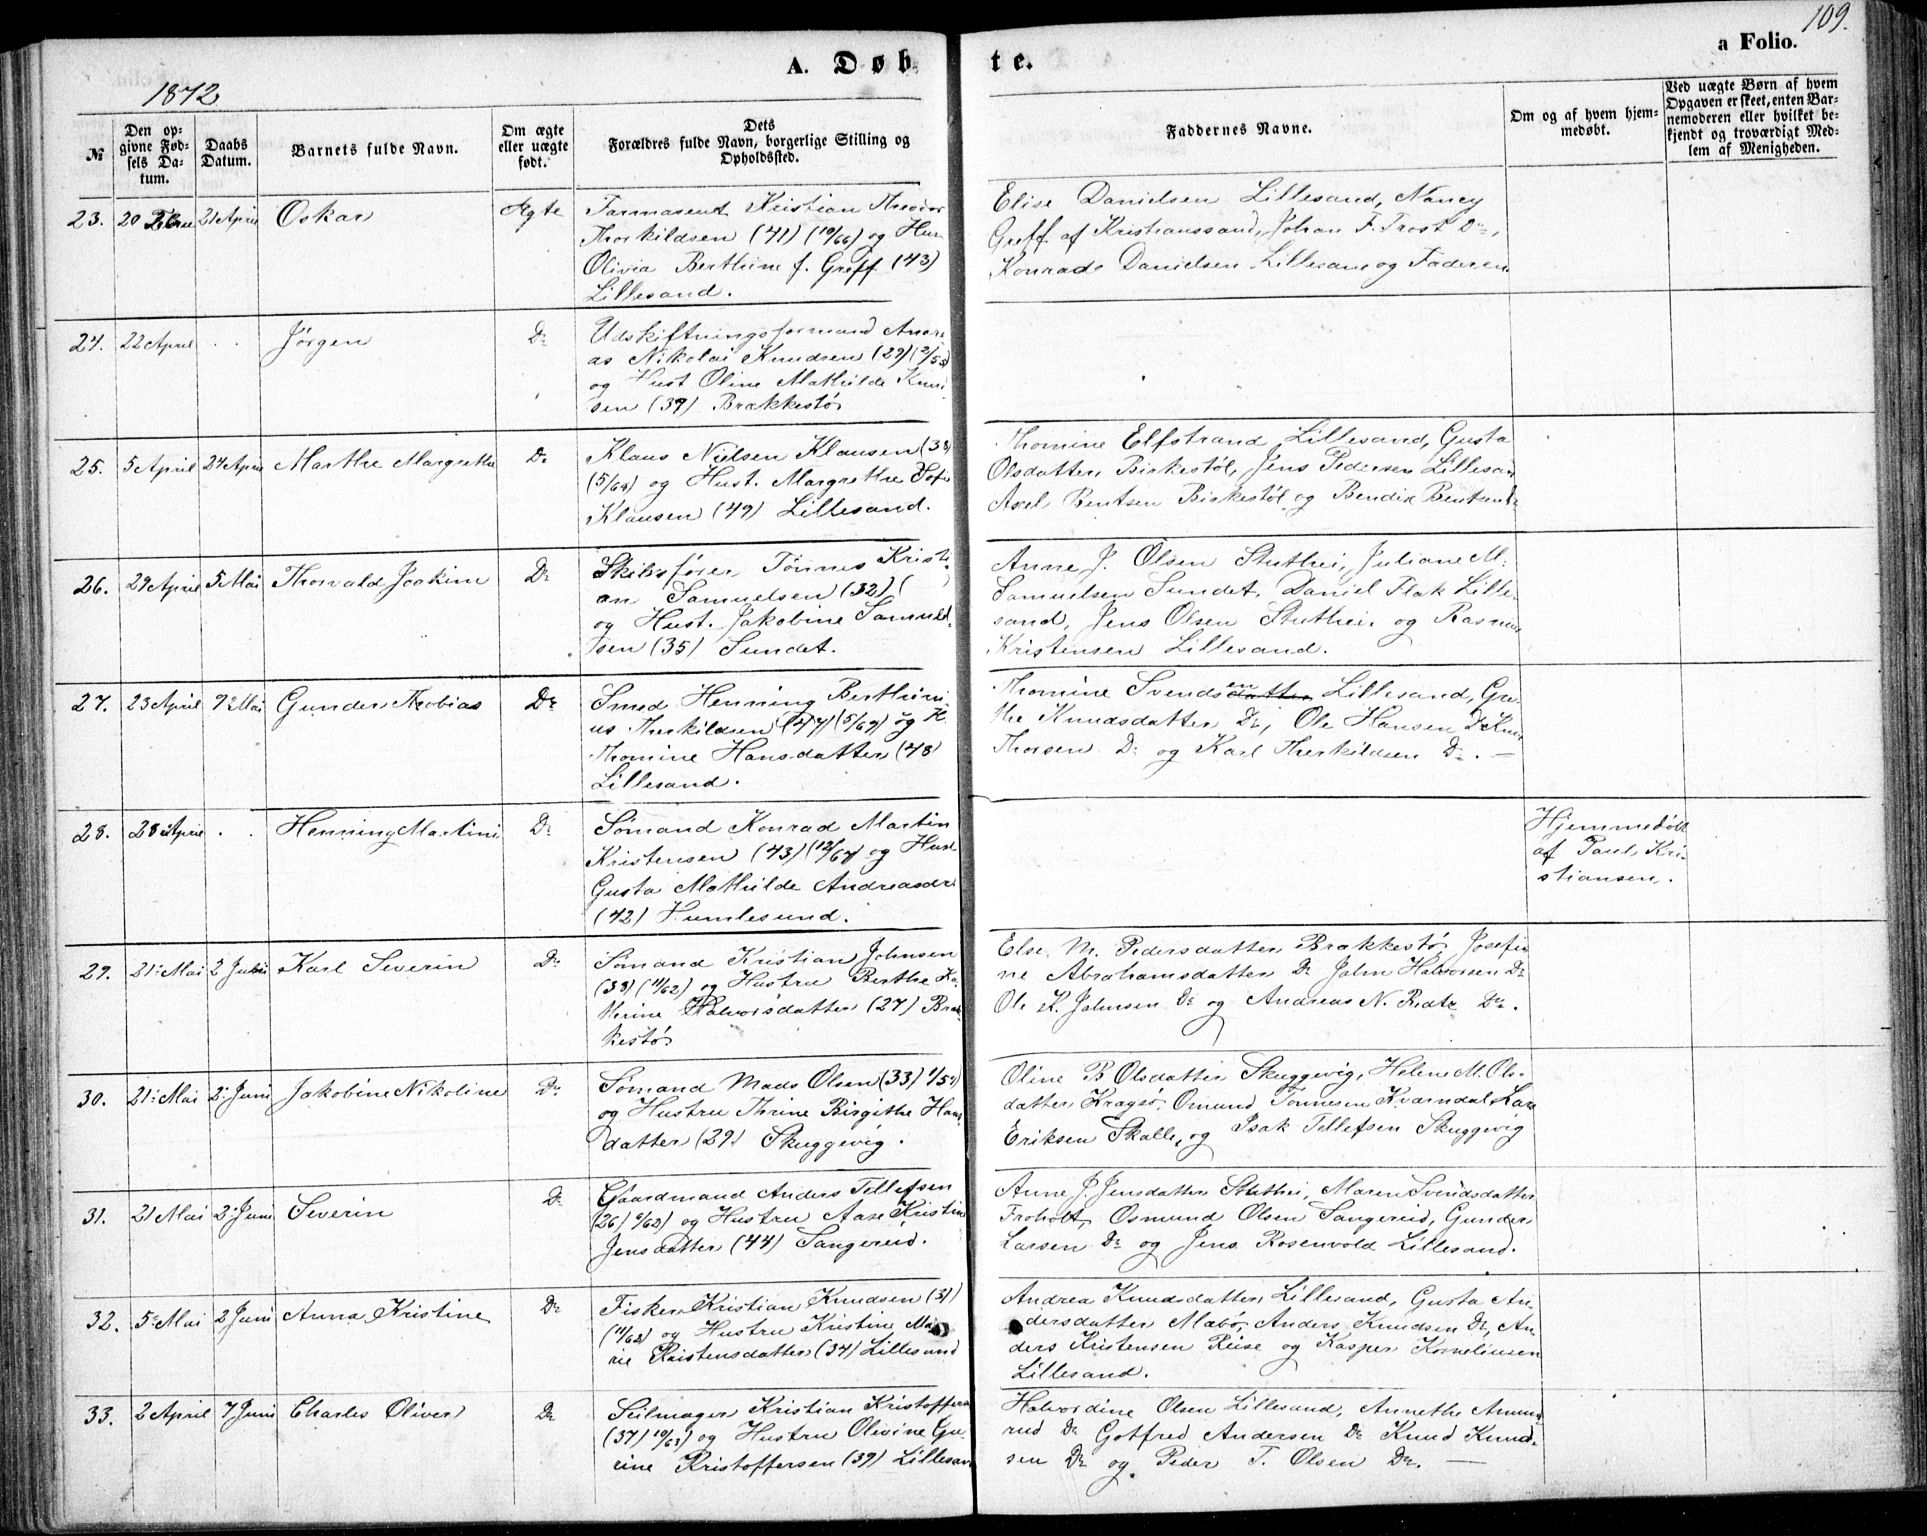 109.
A. Døbte.
a Folio.
1872
№
Den opgivne Fødsels Datum.
Daabs Datum.
Barnets fulde Navn.
Om ægte eller uægte født.
Dets Forældres fulde Navn, borgerlige Stilling og Opholdssted.
Faddernes Navne.
Om og af hvem hjemmedøbt.
Ved uægte Børn af hvem Opgaven er skeet, enten Barnemoderen eller hvilket bekjendt og troværdigt Medlem af Menigheden.
23. 20 21 April Oskar Ægte
Kristian Theodor
Thorkildsen (41) (10/66) og Hun
Olivia Berthine f. Greff (43)
Lillesand.
Elise Danielsen Lillesand, Nancy
Greff af Kristianssand, Johan F. Frost Do,
Konrad Danielsen Lillesand og Faderen
24. 22 April . . Jørgen Do
Udskiftningsformand Andre-
as Nikolai Knudsen (29)
og Hust Oline Mathilde Knud
sen (37) Brækkestø
25. 5 April 24 April Marthe Margrethe Do
Klaus Nielsen Klausen (38)
(5/68) og Hust. Margrethe Sofie
Klausen (49) Lillesand.
Thomine Elfstrand, Lillesand, Gusta
Olsdatter Birkestøl, Jens Pedersen Lillesan
Axel Bentsen Birkestøl og Bendix Bentsen Do
26. 29 April 5 Mai Thorvald Joakim Do
Skibsfører Tønnes Kristi
an Samuelsen (32) (
og Hust. Jakobine Samuel-
sen (35) Sundet.
Anne J. Olsen Stuthei, Juliane M.
Samuelsen Sundet, Daniel Flak Lille-
sand, Jens Olsen Stuthei og Rasmus
Kristensen Lillesand.
27. 23 April 9de Mai Gunder Thobias Do
Smed Henning Berthini-
us Therkildsen (47) (5/69) og H.
Thomine Hansdatter (48
Lillesand.
Thomine Svendsen Lillesand, Gre-
the Knudsdatter Do, Ole Hansen Do Knu
Thorsen Do og Karl Therkildsen Do. —
28. 28 April . . Henning Martini Do
Sømand Konrad Martin
Kristensen (43) (12/67) og Hust
Gusta Mathilde Andreasdr
(42) Humlesund.
Hjemmedøbt
af Paul Kri-
stiansen.
29. 21 Mai 2 Juni Karl Severin Do
Sømand Kristian Johnsen
(33) (11/62) og Hustru Berthe Ka-
thrine Halvorsdatter (27) Bræk
kestø
Else M. Pedersdatter Brækkestø, Josefi
ne Abrahamsdatter Do John Halvorsen Do
Ole K. Johnsen Do og Andreas N. Do.
30. 21 Mai 2 Juni Jakobine Nikoline Do
Sømand Mads Olsen (33)
og Hustru Thrine Birgithe Hans
datter (29) Skuggevig.
Oline B Olsdatter Skuggevig, Helene M. Ols-
datter Kragsø, Omund Tønnesen Kvarndal Lars
Eriksen Skalle, og Isak Tellefsen Skuggevig
31. 21 Mai 2 Juni Severin Do
Gaardmand Anders Tellefsen
(26) (6/62) og Hustru Aase Kristine
Jensdatter (44) Sangereid.
Anne J. Jensdatter Stuthei, Maren Svendsdatter
Froholt, Osmund Olsen Sangereid, Gunder
Larsen Do og Jens Rosenvold Lillesand.
32. 5 Mai 2 Juni Anna Kristine Do
Fisker Kristian Knudsen (31)
(11/62) og Hustru Kristine Ma
rie Kristensdatter (34) Lillesand
Andrea Knudsdatter Lillesand, Gusta An-
dersdatter Mabø, Anders Knudsen Do, An-
ders Kristensen Reise og Kasper Korneliusen
Lillesand.
33. 2 April 7 Juni Charles Oliver Do
Seilmager Kristian Kristoffersen
(37) (10/63) og Hustru Olivine Gu-
rine Kristoffersen (39) Lillesand
Halvordine Olsen Lillesand, Annethe Amun
rud Do Gotfred Andersen Do Knud Knud-
sen Do og Peder T. Olsen Do. —